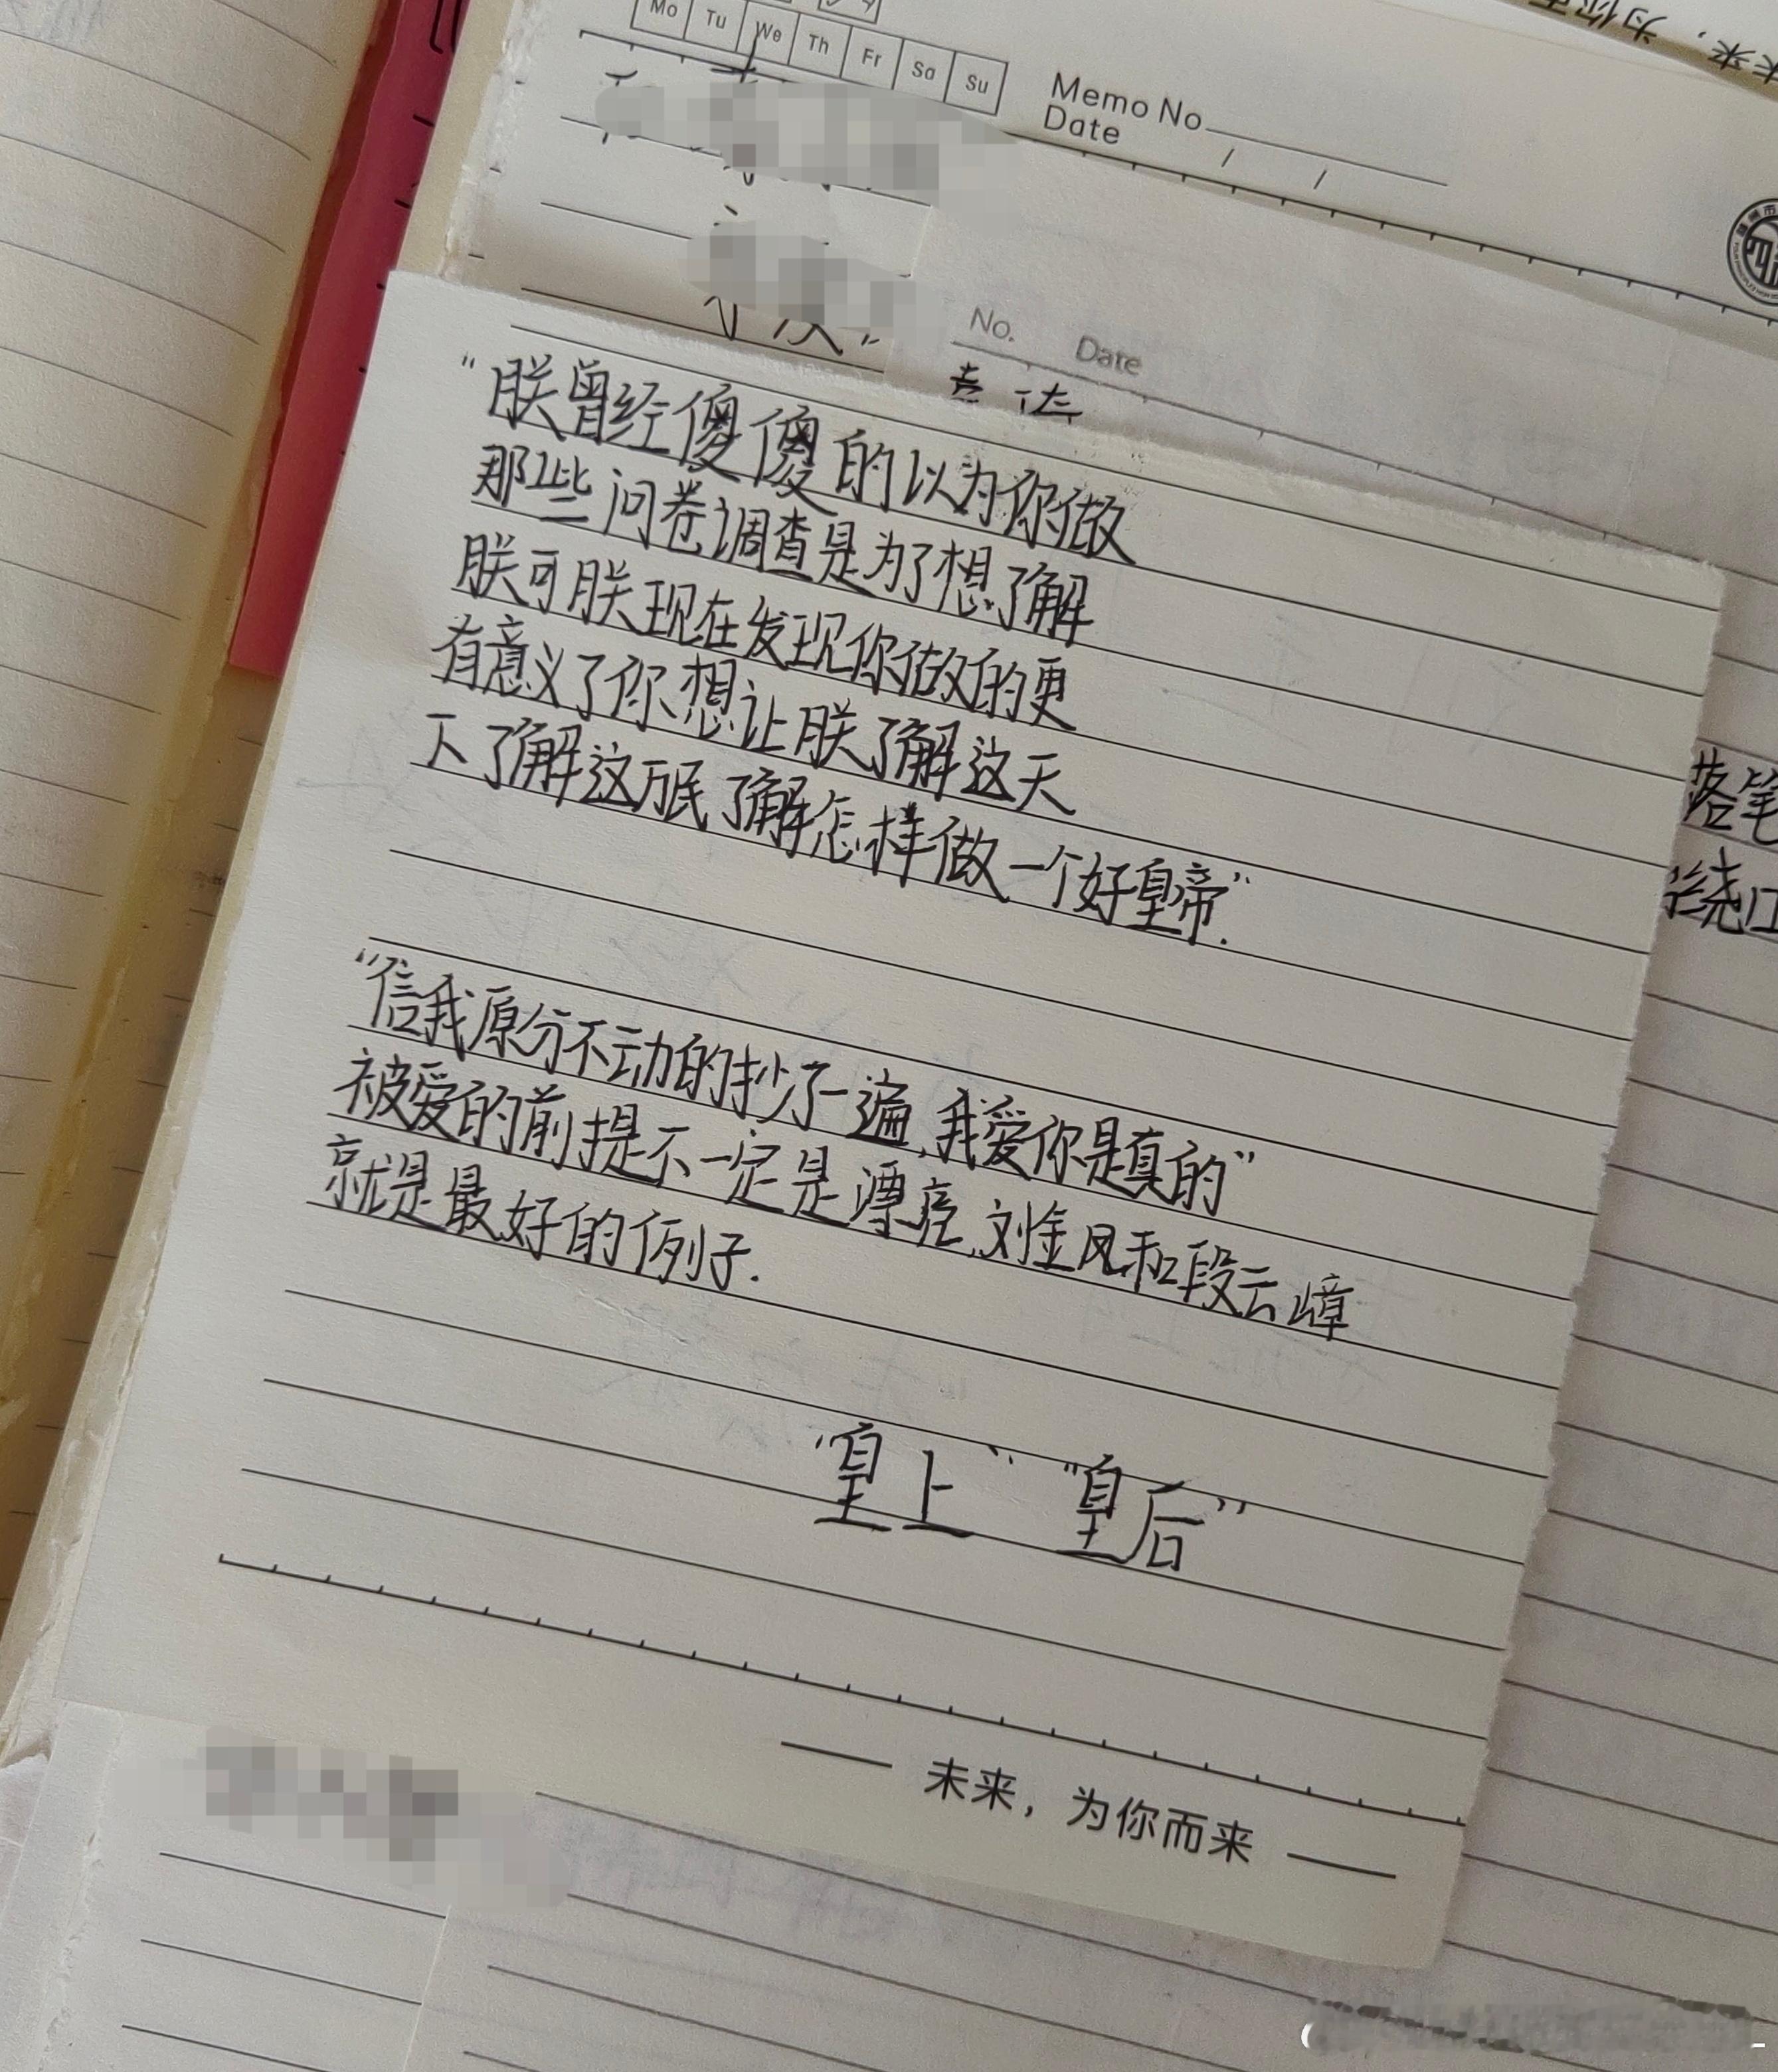 Mo Tu We Th Fr Sa Su
Memo No
Date / /
No. Date
"朕曾经傻傻的以为你做
那些问卷调查是为了想了解
朕可朕现在发现你做的更
有意义了你想让朕了解这天
下了解这万民了解怎样做一个好皇帝".
"信我原分不动的抄了一遍,我爱你是真的"
被爱的前提不一定是漂亮,刘金凤和段云嶂
就是最好的例子.
"皇上" "皇后"
未来，为你而来
落笔
绕口